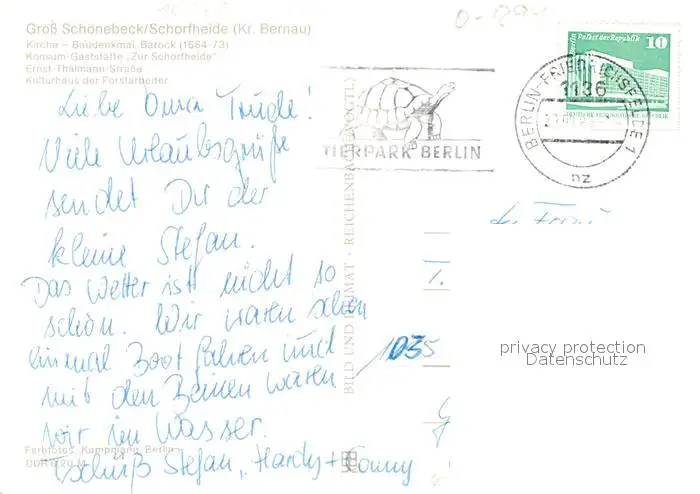 Groß Schönebeck/Schorfheide (Kr. Bernau)
Kirche – Baudenkmal, Barock (1664-73)
Konsum-Gaststätte „Zur Schorfheide"
Ernst-Thälmann-Straße
Kulturhaus der Forstarbeiter
Liebe Trude!
Viele Urlaubsgrüße
sendet Dir der
kleine Stefan.
Das Wetter ist nicht so
schön. Wir waren schon
einmal Boot fahren und
mit den Beinen waren
wir im Wasser.
Tschüß Stefan, Hardy +
Farbfotos: Kampmann, Berlin
BILD UND HEIMAT · REICHENBACH (VOGTL)
TIERPARK BERLIN
BERLIN-FRIEDRICHSFELDE 1
1136
nz
Berlin Palast der Republik
10
DEUTSCHE DEMOKRATISCHE REPUBLIK
1035
privacy protection
Datenschutz